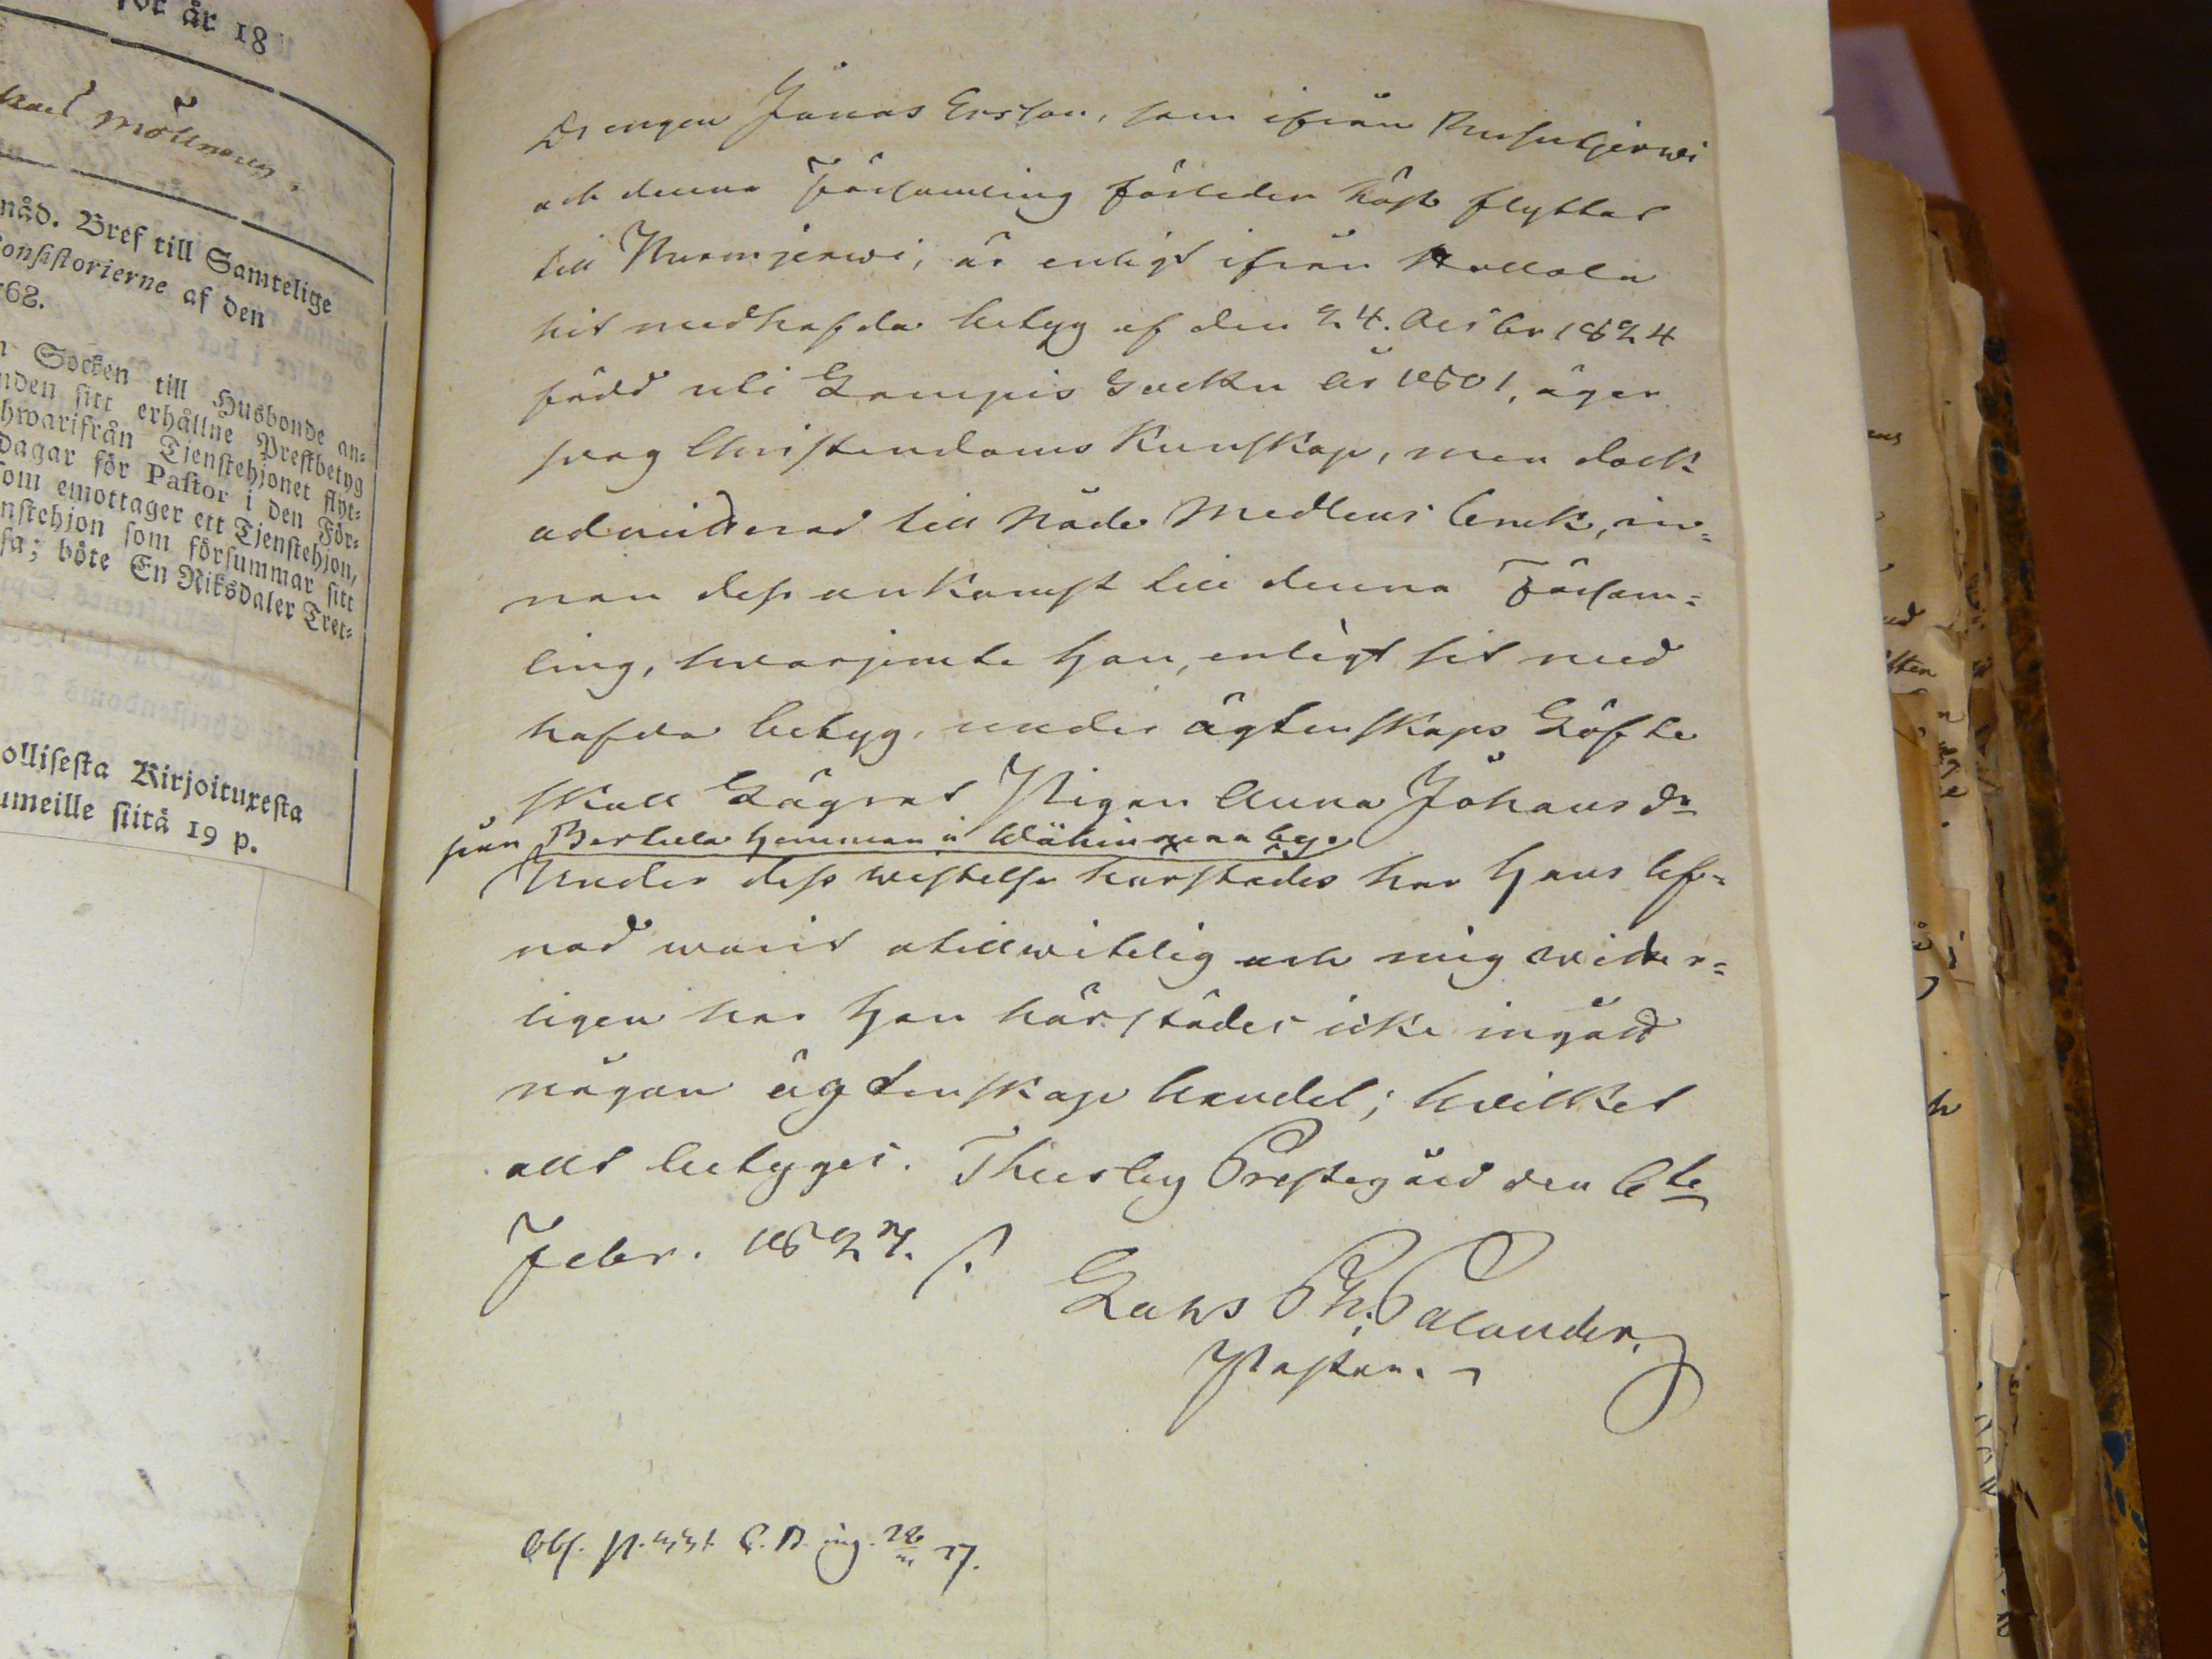 för år 18
mölln
nåd. Bref till Samtelige
onsistorierne af den
68.
Socken till Husbonde an-
nden sitt erhållne Prestbetyg
hwarifrån Tjenstehjonet flyt-
dagar för Pastor i den För-
om emottager ett Tjenstehjon,
nstehjon som försummar sitt
sa; böte En Riksdaler Tret-
ollisesta Kirjoituxesta
umeille siitä 19 p.
Drengen Jonas Ersson, som ifrån Rusutjerwi
och denna Församling förleden höst flyttat
till Nurmjerwi, är enligt ifrån Hollola
hit medhafda betyg af den 24. Octobr 1824
född uti Lampis Sockn år 1801, äger
swag Christendoms Kunskap, men dock
admitterad till Nåde Medlens bruk, in-
nan dess ankomst till denna Församl-
ling, hwarjemte han, enligt hit med
hafda betyg, under ägtenskaps Löfte
skall Lägrat Pigan Anna Johans dr
från Bertula hemman i Wähinmaa by.
Under dess wistelse härstädes har hans lef-
nad warit otillwitelig och mig weter-
ligen har han härstädes icke ingådt
någon ägtenskaps handel; hvilket
allt betyges. Thusby Prestegård den 6te
Febr. 1827.
Lars Ph. Palander,
Pastor.
Obs. p. 27.